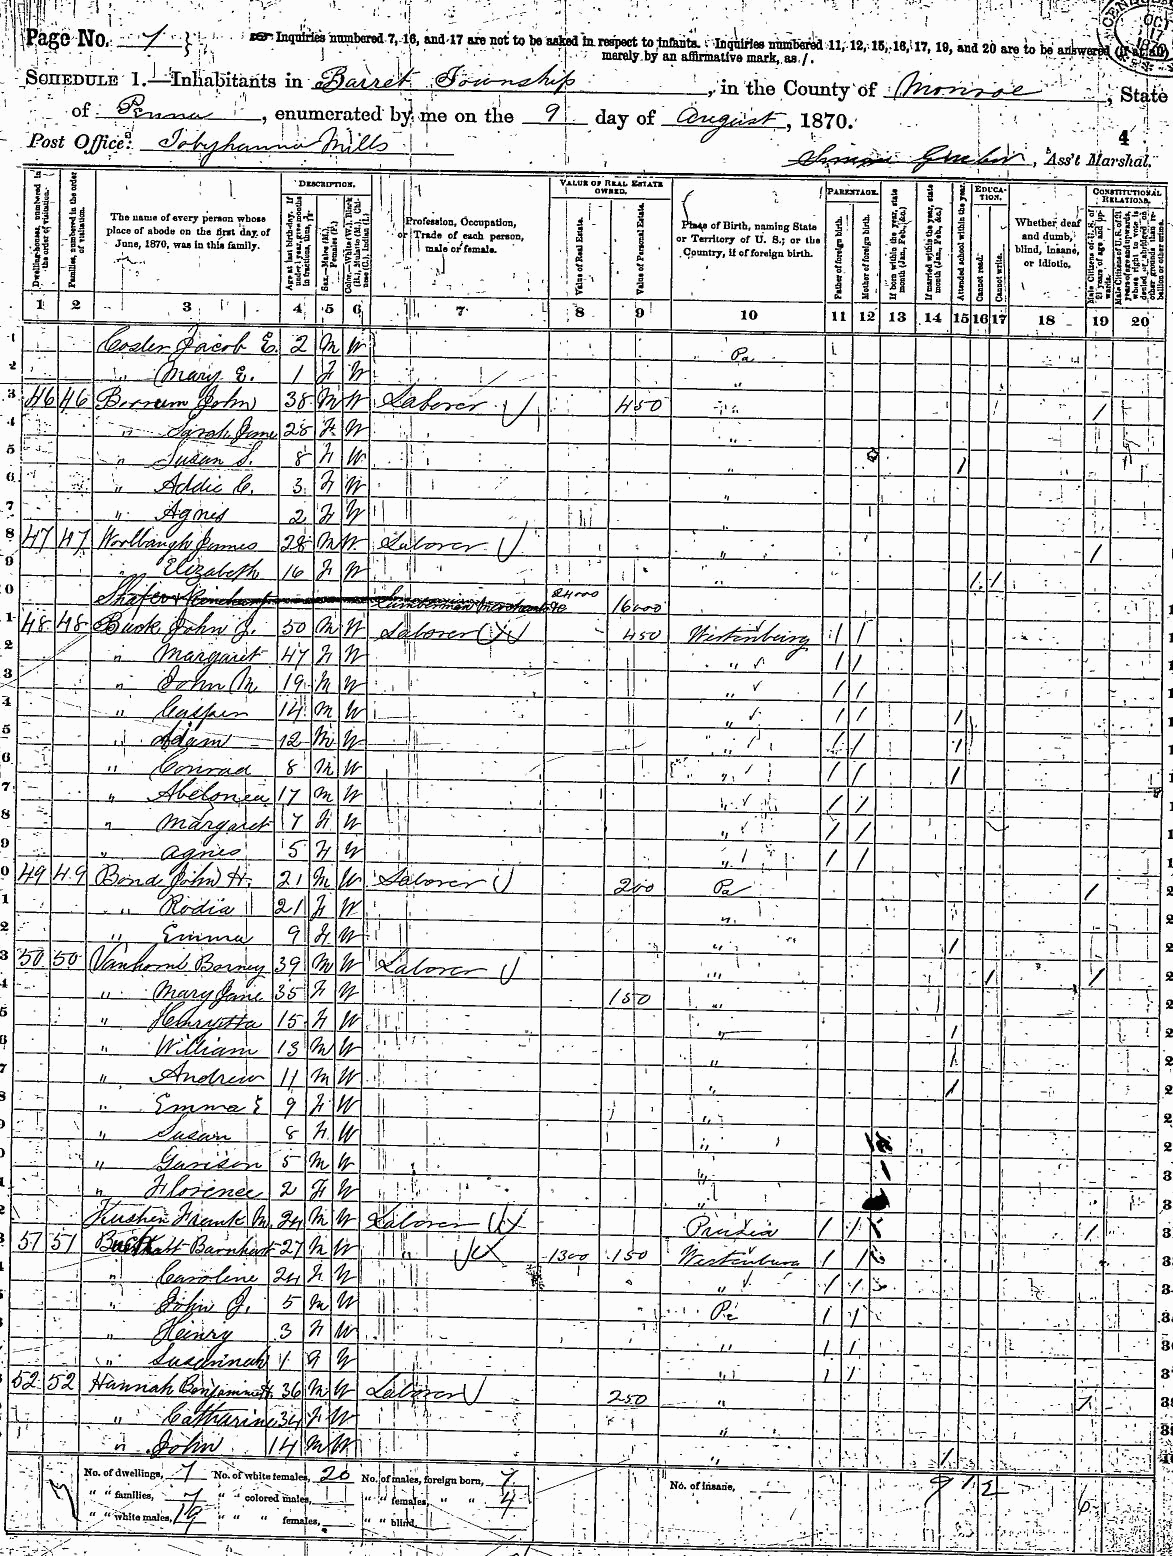 Page No. 7
Inquiries numbered 7, 16, and 17 are not to be asked in respect to infants. Inquiries numbered 11, 12, 15, 16, 17, 19, and 20 are to be answered (if at all)
merely by an affirmative mark, as /.
SCHEDULE 1.—Inhabitants in Barret Township, in the County of Monroe, State
of Penna, enumerated by me on the 9 day of August, 1870.
Post Office: Tobyhanna Mills
4
Ass't Marshal.
DESCRIPTION.
VALUE OF REAL ESTATE OWNED.
PARENTAGE.
EDUCATION.
CONSTITUTIONAL RELATIONS.
Dwelling-houses, numbered in the order of visitation.
Families, numbered in the order of visitation.
The name of every person whose place of abode on the first day of June, 1870, was in this family.
Profession, Occupation, or Trade of each person, male or female.
Value of Real Estate.
Value of Personal Estate.
Place of Birth, naming State or Territory of U. S.; or the Country, if of foreign birth.
Father of foreign birth.
Mother of foreign birth.
If born within the year, state month (Jan., Feb., &c.)
If married within the year, state month (Jan., Feb., &c.)
Attended school within the year.
Cannot read.
Cannot write.
Whether deaf and dumb, blind, insane, or idiotic.
1 2 3 4 5 6 7 8 9 10 11 12 13 14 15 16 17 18 19 20
Coster Jacob E. 2 M W Pa
" Mary E. 1 F W "
46 46 Berrum John 38 M W Laborer 450 " /
" Sarah Jane 28 F W "
" Susan S. 8 F W " /
" Addie C. 3 F W
" Agnes 2 F W "
47 47 Woolbaugh James 28 M W Laborer " /
" Elizabeth 16 F W " / /
Lumberman 24000 16000
48 48 Buck John J. 50 M W Laborer 450 Wirtenburg / /
" Margaret 47 F W " / /
" John M. 19 M W " / /
" Casper 14 M W " / / /
" Adam 12 M W " / / /
" Conrad 8 M W " / / /
" Abelonea 17 M W " / /
" Margaret 7 F W " / /
" Agnes 5 F W " / /
49 49 Bond John H. 21 M W Laborer 200 Pa /
" Rodia 21 F W "
" Emma 9 F W " /
50 50 Vanhorn Borney 39 M W Laborer " / /
" Mary Jane 35 F W 150 "
" Henrytta 15 F W " /
" William 13 M W " /
" Andrew 11 M W " /
" Emma E 9 F W "
" Susan 8 F W "
" Garison 5 M W "
" Florence 2 F W "
Kusher Frank M. 24 M W Laborer Prusia / / /
51 51 Barnhart 27 M W " 1300 150 Wirtenburg / /
" Caroline 24 F W " / /
" John J. 5 M W Pa / /
" Heinry 3 F W " / /
" Susannah 1 9 W / /
52 52 Hannah Benjamin H. 36 M W Laborer 250 " /
" Catharine 34 F W
" John 14 M W " /
No. of dwellings, 7 No. of white females, 20 No. of males, foreign born, 7 No. of insane,
" " families, 7 " " colored males, " " females, " " 4
" " white males, 19 " " " females, " " blind,
9 1 2 6